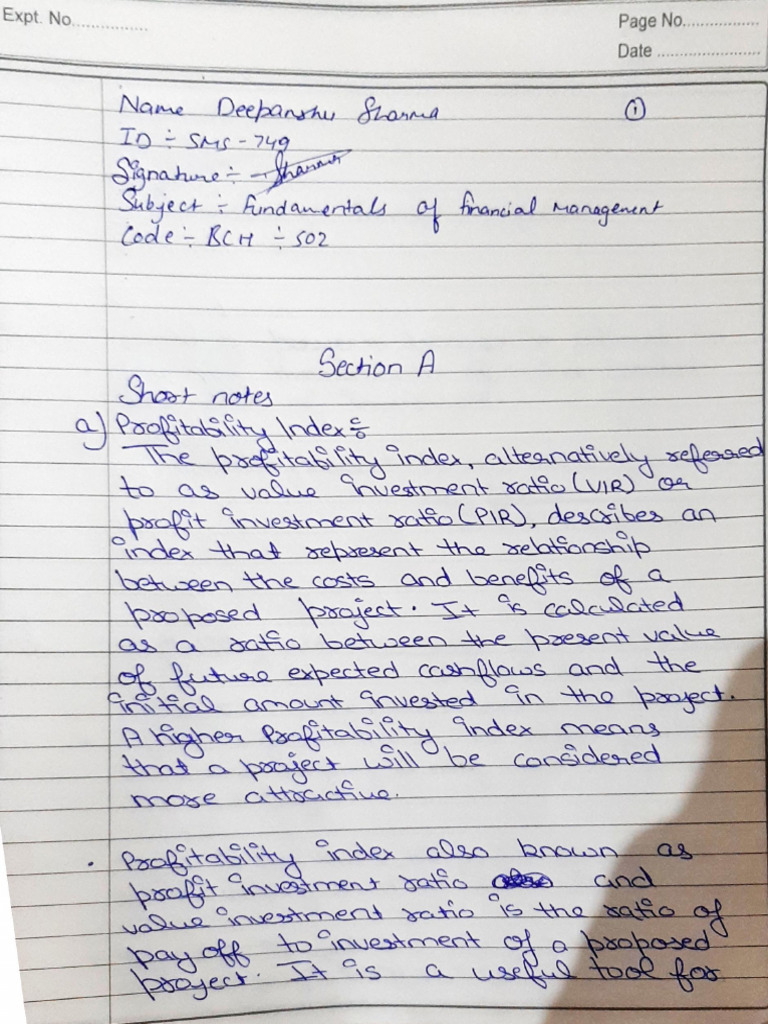 Expt. No................
Page No..................
Date ........................
Name Deepanshu Sharma
①
ID ÷ SMS - 749
Signature ÷ Sharma
Subject ÷ Fundamentals of financial management
Code ÷ BCH ÷ 502
Section A
Short notes
a) Profitability Index ÷
The profitability index, alternatively referred
to as value investment ratio (VIR) or
profit investment ratio (PIR), describes an
index that represent the relationship
between the costs and benefits of a
proposed project. It is calculated
as a ratio between the present value
of future expected cashflows and the
initial amount invested in the project.
A higher Profitability index means
that a project will be considered
more attractive.
. Profitability index also known as
profit investment ratio and
value investment ratio is the ratio of
pay off to investment of a proposed
project. It is a useful tool for